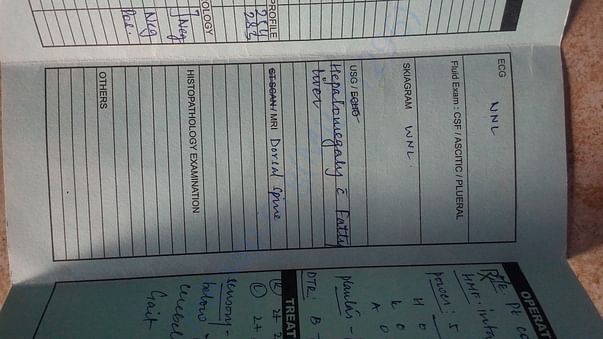 ECG WNL
Fluid Exam : CSF / ASCITIC / PLUERAL
SKIAGRAM WNL.
USG / ECHO
Hepatomegaly c̄ Fatty
liver
CT SCAN / MRI Dorsal Spine
HISTOPATHOLOGY EXAMINATION
OTHERS
PROFILE
OLOGY
Neg
Neg
Pos.
OPERAT
Power: 5
H 0
K 0
A 0
Plantars -
DTR: B
TREAT
(R) 2+ 2
(L) 2+
Sensory -
below
cerebel
Gait